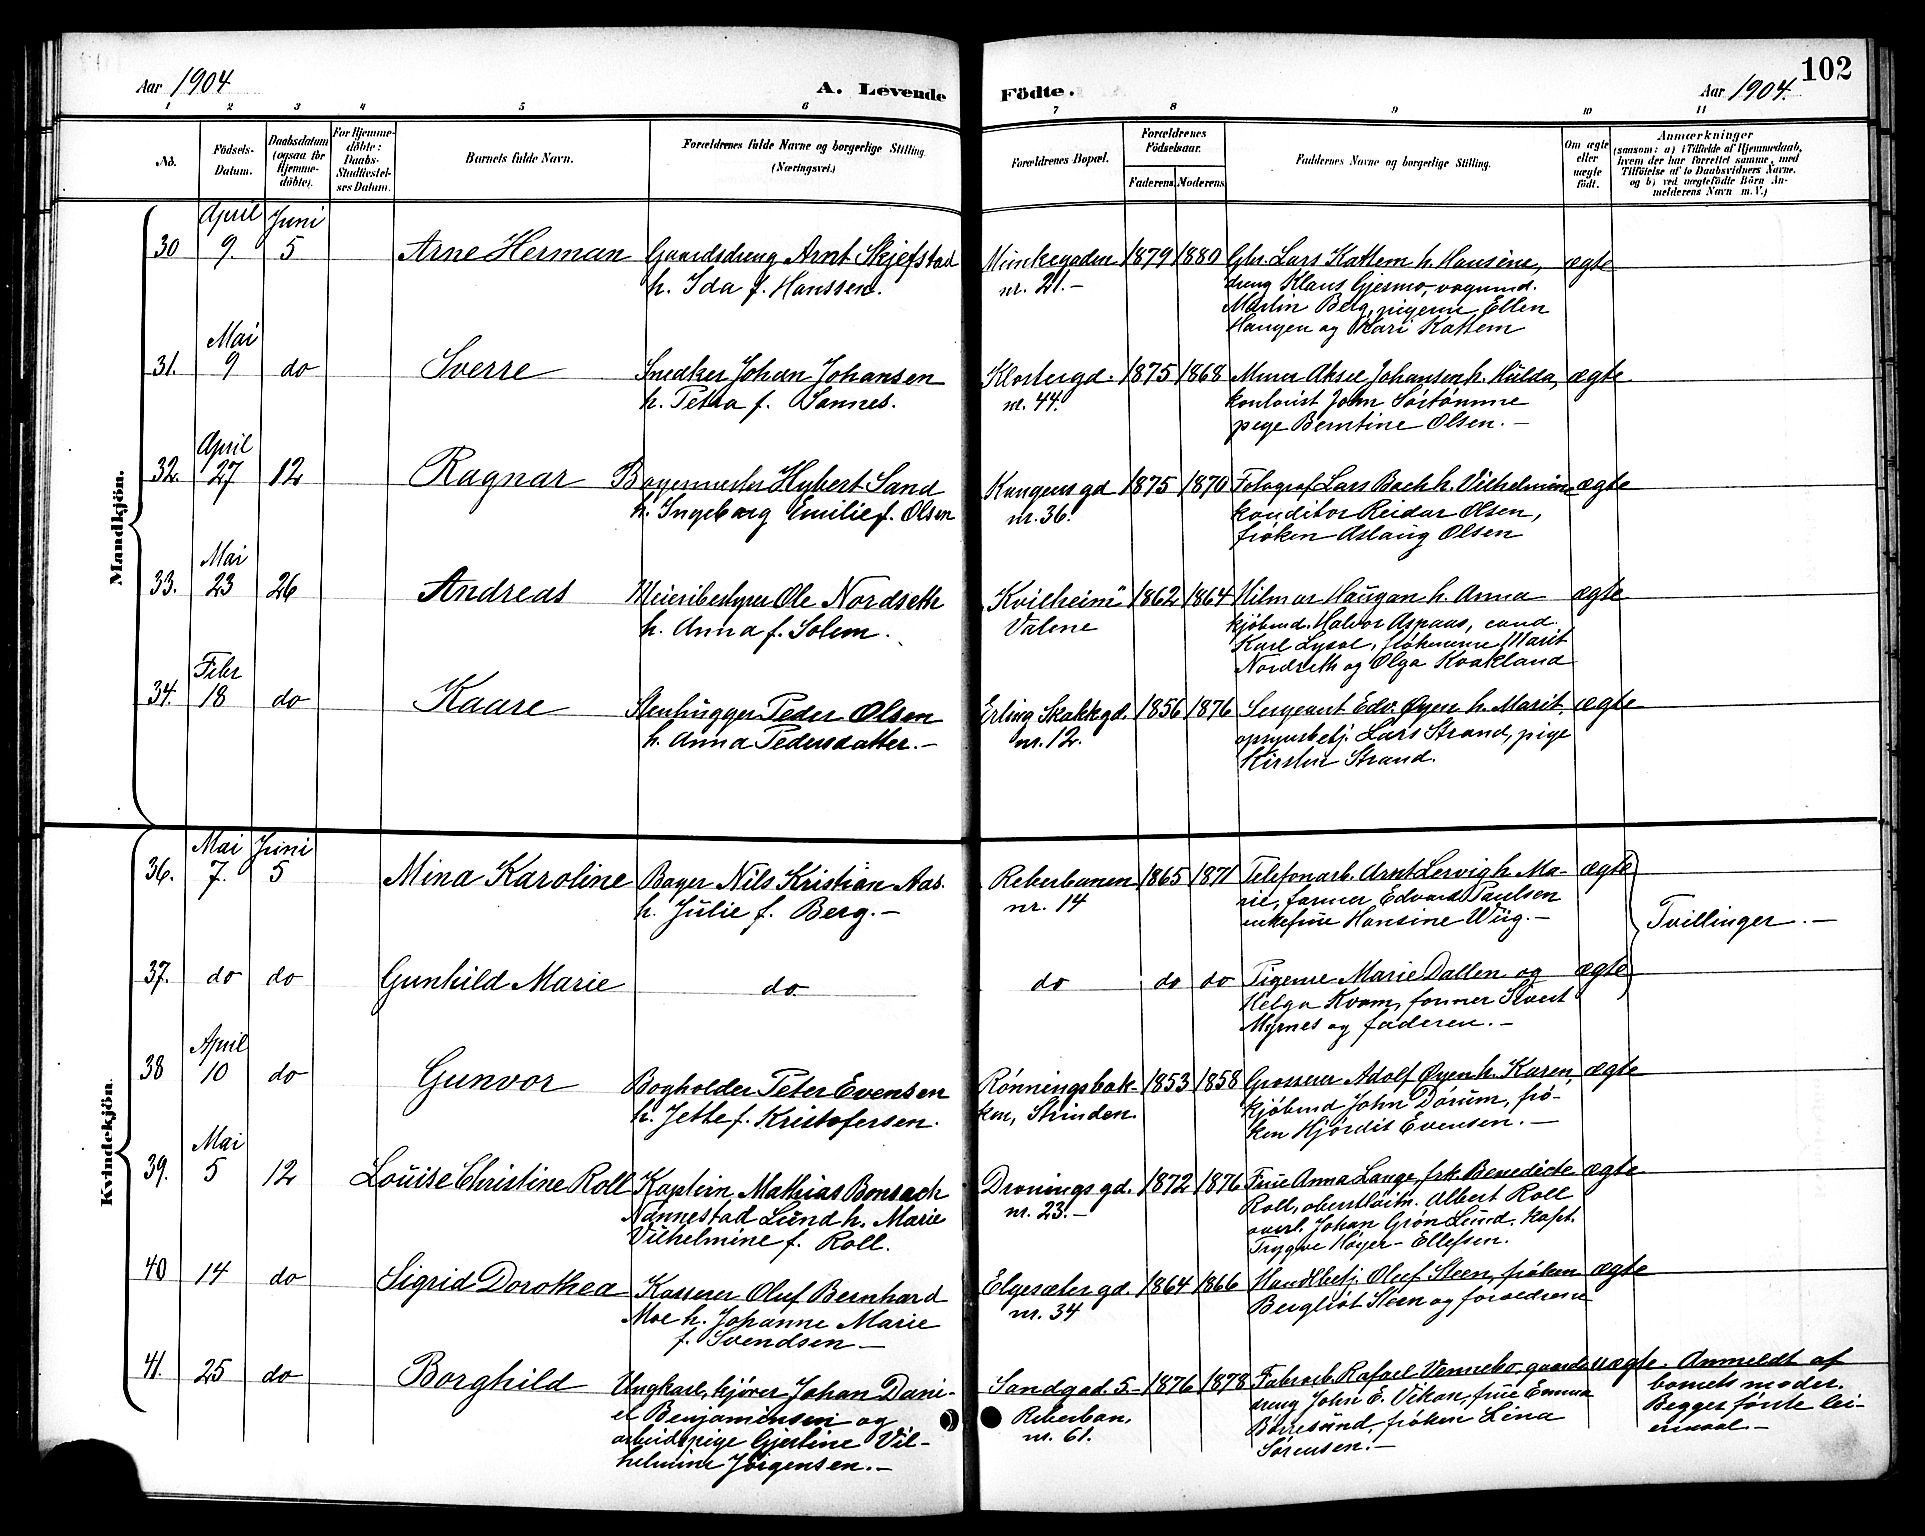 Aar 1904
A. Levende Födte.
Aar 1904.
102
1 2 3 4 5 6 7 8 9 10 11
No.
Födsels-Datum.
Daabsdatum (ogsaa for Hjemme-döbte).
For Hjemme-döbte: Daabs-Stadfæstel-ses Datum.
Barnets fulde Navn.
Forældrenes fulde Navne og borgerlige Stilling. (Næringsvei.)
Forældrenes Bopæl.
Forældrenes Födselsaar.
Faderens. Moderens.
Faddernes Navne og borgerlige Stilling.
Om ægte eller uægte födt.
Anmærkninger
(saasom: a) i Tilfælde af Hjemmedaab, hvem der har forrettet samme, med Tilföielse af to Daabsvidners Navne. og b) ved uægtefödte Börn An-melderens Navn m. V.)
Mandkjön.
30 April 9. Juni 5 Arne Herman Gaardsdreng Arnt Skjefstad Munkegaden 1879 1880 Gbr. Lars Kattem h. Hansine, ægte
h. Ida f. Hanssen. nr. 21.- dreng Klaus Gjesmo, vognmd.
Martin Berg, pigerne Ellen
Haugen og Mari Kattem
31. Mai 9 do Sverre Snedker Johan Johansen Klostergd. 1875 1868 Murer Aksel Johansen h. Hulda, ægte
h. Petra f. Sannes. nr. 44. kontorist John Sörtömme
pige Berntine Olsen.-
32. April 27 12 Ragnar Bagermester Hybert Sand Kongensgd 1875 1870 Fotograf Lars Bach h. Vilhelmine ægte
h. Ingeborg Emilie f. Olsen nr. 36. konditor Reidar Olsen,
frøken Aslaug Olsen
33. Mai 23 26 Andreas Meieribestyrer Ole Nordseth „Kvilheim" 1862 1864 Hilmar Haugan h. Anna ægte
h. Anna f. Solem. Valene kjøbmd. Halvor Aspaas, cand.
Karl Lysol, frøknerne Marit
Nordseth og Olga Kvakland
34. Febr 18 do Kaare Stenhugger Peder Olsen Erling Skakkegd. 1856 1876 Sergeant Edv. Øyen h. Marit, ægte
h. Anna Pedersdatter.- nr. 12. opsynsbetj. Lars Strand, pige
Kirsten Strand.
Kvindekjön.
36. Mai 7. Juni 5 Mina Karoline Bager Nils Kristian Aas. Reberbanen 1865 1871 Telefonarb. Arnt Lervig h. Ma- ægte
h. Julie f. Berg.- nr. 14 rie, former Edvard Paulsen
enkefrue Hansine Wiig.- Tvillinger.-
37. do do Gunhild Marie do do do do Pigerne Marie Dallen og ægte
Helga Kvam, former Sivert
Myrnes og faderen.-
38 April 10 do Gunvor Bogholder Peter Evensen Rønningsbak- 1853 1858 Grosserer Adolf Øyen h. Karen, ægte
h. Jette f. Kristofersen. ken, Strinden. kjøbmd John Dørum, frø-
ken Hjørdis Evensen.-
39. Mai 5 12 Louise Christine Roll Kaptein Mathias Bonsach Dronningsgd. 1872 1876 Frue Anna Lange, frk. Benedicte ægte
Nannestad Lund h. Marie nr. 23.- Roll, oberstløitn. Albert Roll
Vilhelmine f. Roll. overl. Johan Grøn Lund, kapt.
Trygve Høyer-Ellefsen.
40 14 do Sigrid Dorothea Kasserer Oluf Bernhard Elgesætergd. 1864 1866 Handlbetj. Oluf Steen, frøken ægte
Moe h. Johanne Marie nr. 34 Bergliot Steen og forældrene
f. Svendsen-
41. 25 do Borghild Ungkarl, kjører Johan Dani- Sandgad. 5- 1876 1878 Fabrarb. Rafael Vennebo, gaards- uægte. Anmeldt af
el Benjaminsen og Reberban. dreng John E. Vikan, frue Emma barnets moder.
arbeidspige Gjertine Vil- nr. 61. Borresund, frøken Lina Begges første lei-
helmine Jörgensen.- Sørensen.- ermaal.-